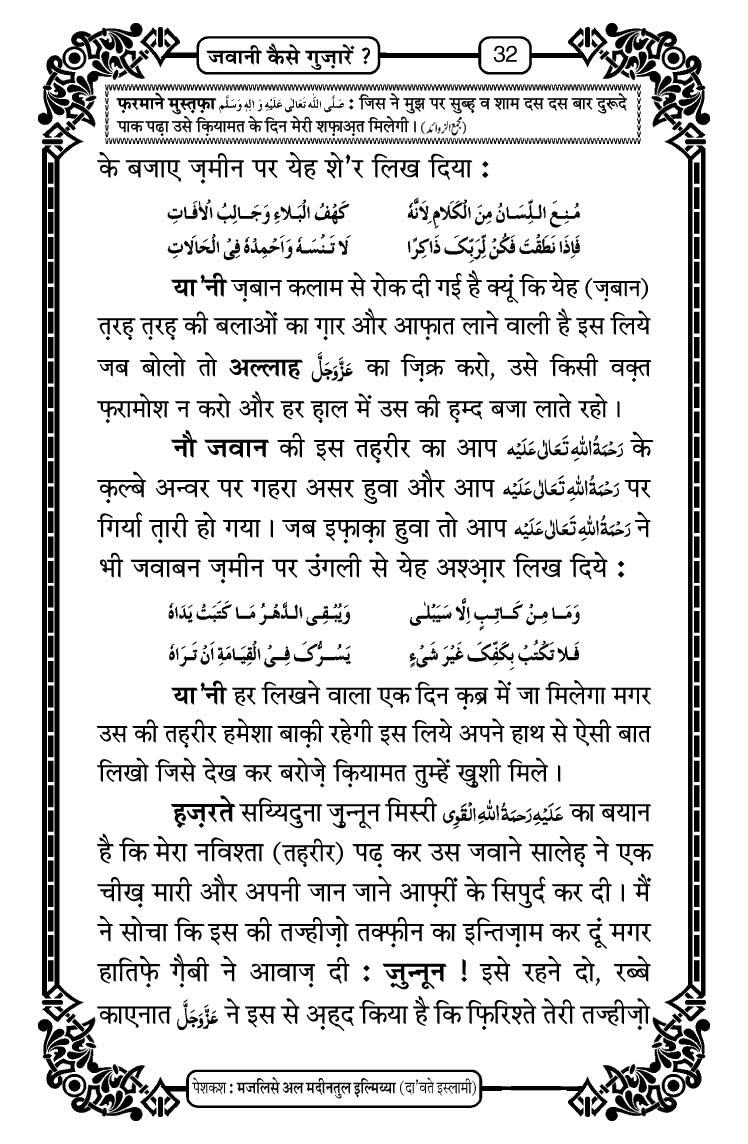 जवानी कैसे गुज़ारें ?
32
फ़रमाने मुस्तफ़ा صَلَّى اللّٰهُ تَعَالٰى عَلَيْهِ وَاٰلِهٖ وَسَلَّم : जिस ने मुझ पर सुब्ह़ व शाम दस दस बार दुरूदे
पाक पढ़ा उसे क़ियामत के दिन मेरी शफ़ाअ़त मिलेगी । (مجمع الزوائد)
के बजाए ज़मीन पर येह शे’र लिख दिया :
مُنِعَ اللِّسَانُ مِنَ الْكَلَامِ لِاَنَّهٗ كَهْفُ الْبَلَاءِ وَجَالِبُ الْاٰفَاتِ
فَاِذَا نَطَقْتَ فَكُنْ لِّرَبِّكَ ذَاكِرًا لَا تَنْسَهٗ وَاحْمِدْهُ فِي الْحَالَاتِ
या’नी ज़बान कलाम से रोक दी गई है क्यूं कि येह (ज़बान)
त़रह़ त़रह़ की बलाओं का ग़ार और आफ़ात लाने वाली है इस लिये
जब बोलो तो अल्लाह عَزَّوَجَلَّ का ज़िक्र करो, उसे किसी वक़्त
फ़रामोश न करो और हर ह़ाल में उस की ह़म्द बजा लाते रहो ।
नौ जवान की इस तह़रीर का आप رَحْمَةُ اللّٰهِ تَعَالٰى عَلَيْه के
क़ल्बे अन्वर पर गहरा असर हुवा और आप رَحْمَةُ اللّٰهِ تَعَالٰى عَلَيْه पर
गिर्या त़ारी हो गया । जब इफ़ाक़ा हुवा तो आप رَحْمَةُ اللّٰهِ تَعَالٰى عَلَيْه ने
भी जवाबन ज़मीन पर उंगली से येह अश्आ़र लिख दिये :
وَمَا مِنْ كَاتِبٍ اِلَّا سَيَبْلٰى وَيُبْقِي الدَّهْرُ مَا كَتَبَتْ يَدَاهُ
فَلَا تَكْتُبْ بِكَفِّكَ غَيْرَ شَيْءٍ يَسُرُّكَ فِي الْقِيَامَةِ اَنْ تَرَاهُ
या’नी हर लिखने वाला एक दिन क़ब्र में जा मिलेगा मगर
उस की तह़रीर हमेशा बाक़ी रहेगी इस लिये अपने हाथ से ऐसी बात
लिखो जिसे देख कर बरोज़े क़ियामत तुम्हें खुशी मिले ।
ह़ज़रते सय्यिदुना ज़ुन्नून मिस्री عَلَيْهِ رَحْمَةُ اللّٰهِ الْقَوِى का बयान
है कि मेरा नविश्ता (तह़रीर) पढ़ कर उस जवाने सालेह़ ने एक
चीख़ मारी और अपनी जान जाने आफ़्रीं के सिपुर्द कर दी । मैं
ने सोचा कि इस की तज्हीज़ो तक्फ़ीन का इन्तिज़ाम कर दूं मगर
हातिफ़े ग़ैबी ने आवाज़ दी : ज़ुन्नून ! इसे रहने दो, रब्बे
काएनात عَزَّوَجَلَّ ने इस से अ़ह्द किया है कि फ़िरिश्ते तेरी तज्हीज़ो
पेशकश : मजलिसे अल मदीनतुल इल्मिय्या (दा’वते इस्लामी)